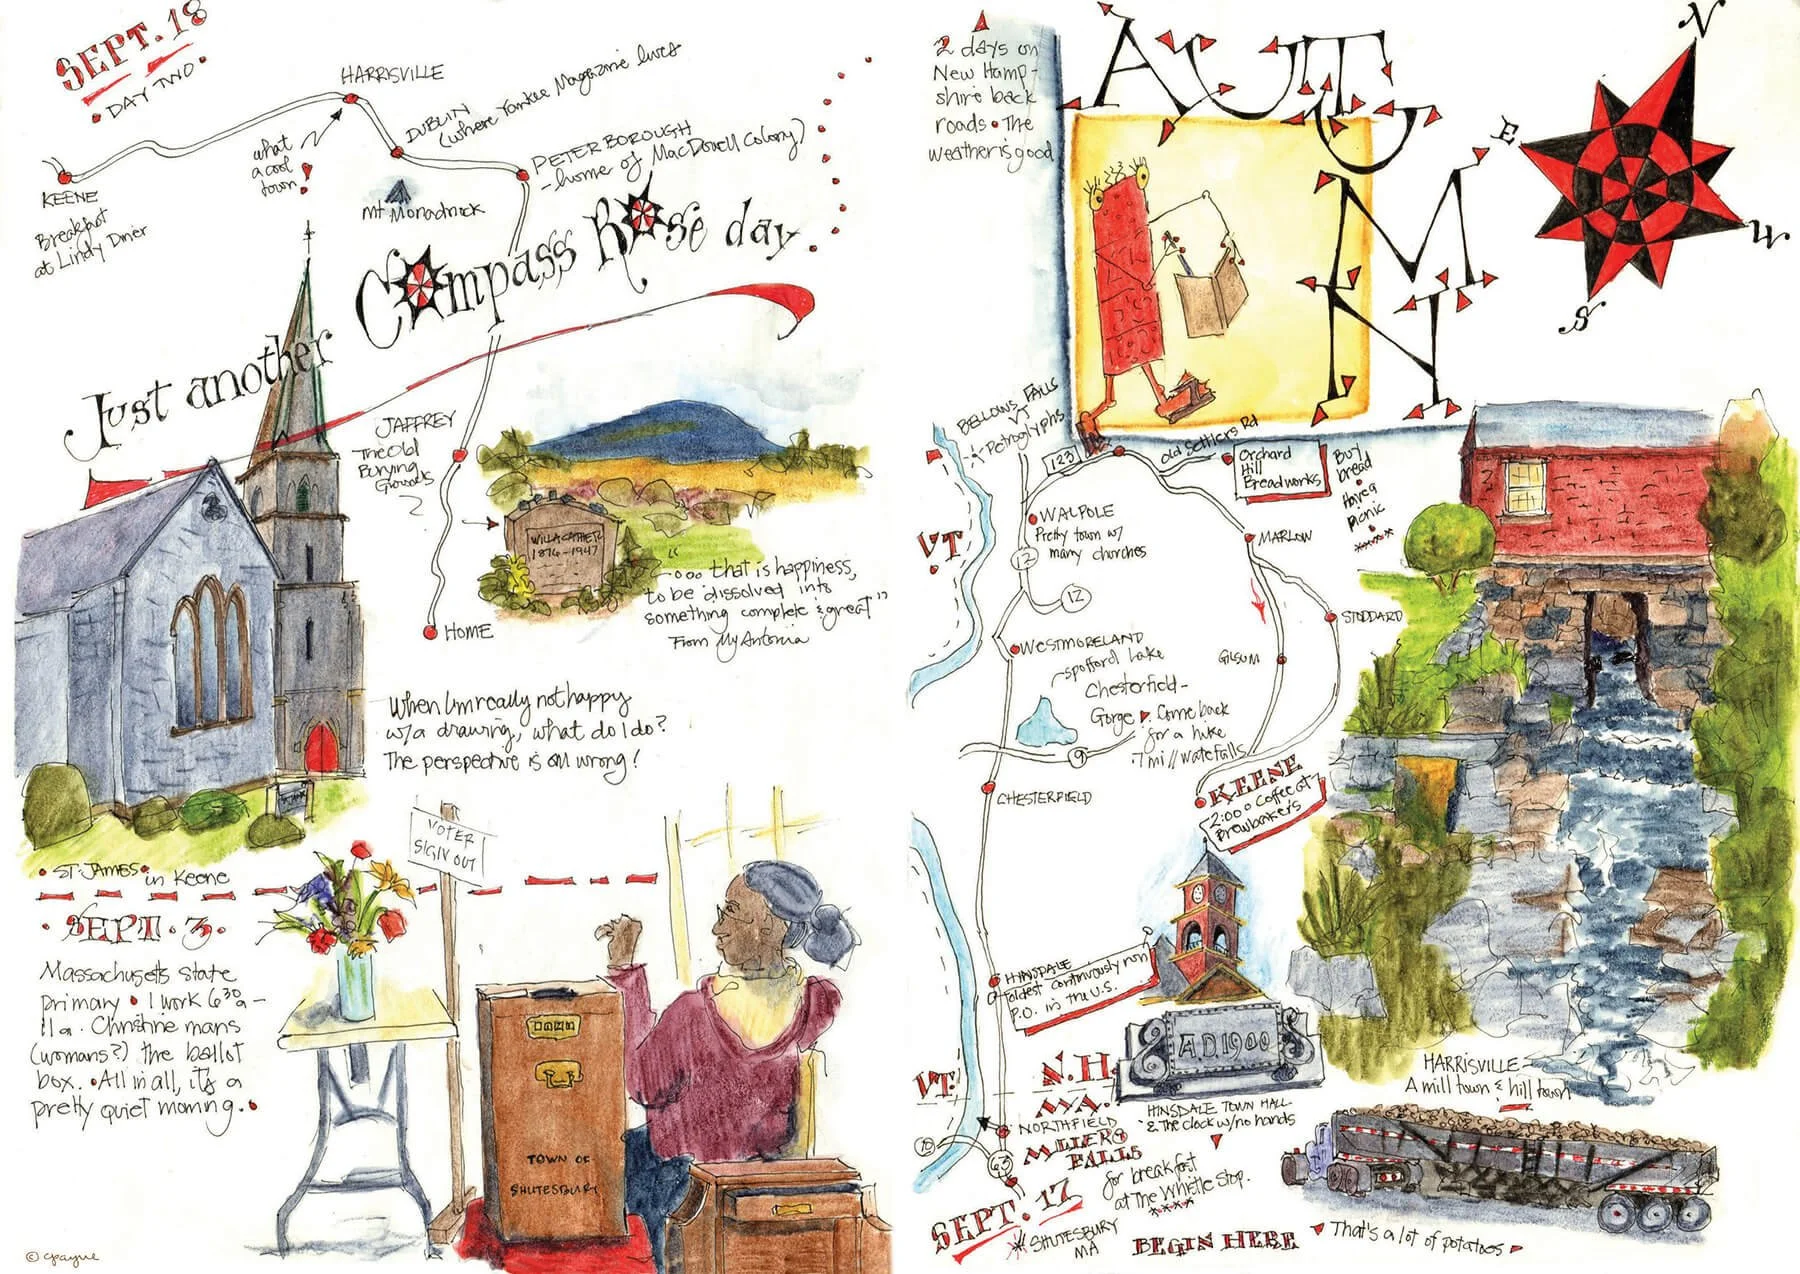 SEPT. 18
DAY TWO
HARRISVILLE
what
a cool
town!
KEENE
Breakfast
at Lindy Diner
DUBLIN
(where Yankee Magazine lives
PETERBOROUGH
-home of MacDowell Colony)
Mt Monadnock
Just another Compass Rose day
JAFFREY
The Old
Burying
Grounds
WILLA CATHER
1876-1947
"... that is happiness,
to be dissolved into
something complete & great"
From My Antonia
HOME
When I'm really not happy
w/a drawing, what do I do?
The perspective is all wrong!
ST. JAMES in Keene
VOTER
SIGN OUT
SEPT. 3.
Massachusetts state
primary • I work 6 30 a -
11 a. Christine mans
(womans?) the ballot
box. • All in all, it's a
pretty quiet morning.
TOWN OF
SHUTESBURY
© cpayne
2 days on
New Hamp-
shire back
roads • The
weather is good
AUTUMN
N
E
W
S
BELLOWS FALLS
VT
Petroglyphs
123
old Settlers Rd
Orchard
Hill
Breadworks
Buy
bread
Have a
Picnic
VT
WALPOLE
Pretty town w/
many churches
12
12
MARLOW
STODDARD
GILSUM
WESTMORELAND
spofford Lake
Chesterfield-
Gorge Come back
for a hike
.7 mi // waterfalls
9
CHESTERFIELD
KEENE
2:00 Coffee at
Brewbakers
HINSDALE
oldest continuously run
P.O. in the U.S.
A.D. 1900
HINSDALE TOWN HALL
& the clock w/no hands
HARRISVILLE
A mill town & hill town
VT.
N.H.
MA.
NORTHFIELD
10
63
MILLERS
FALLS
for breakfast
at The Whistle Stop.
SEPT. 17
SHUTESBURY
MA
BEGIN HERE
That's a lot of potatoes